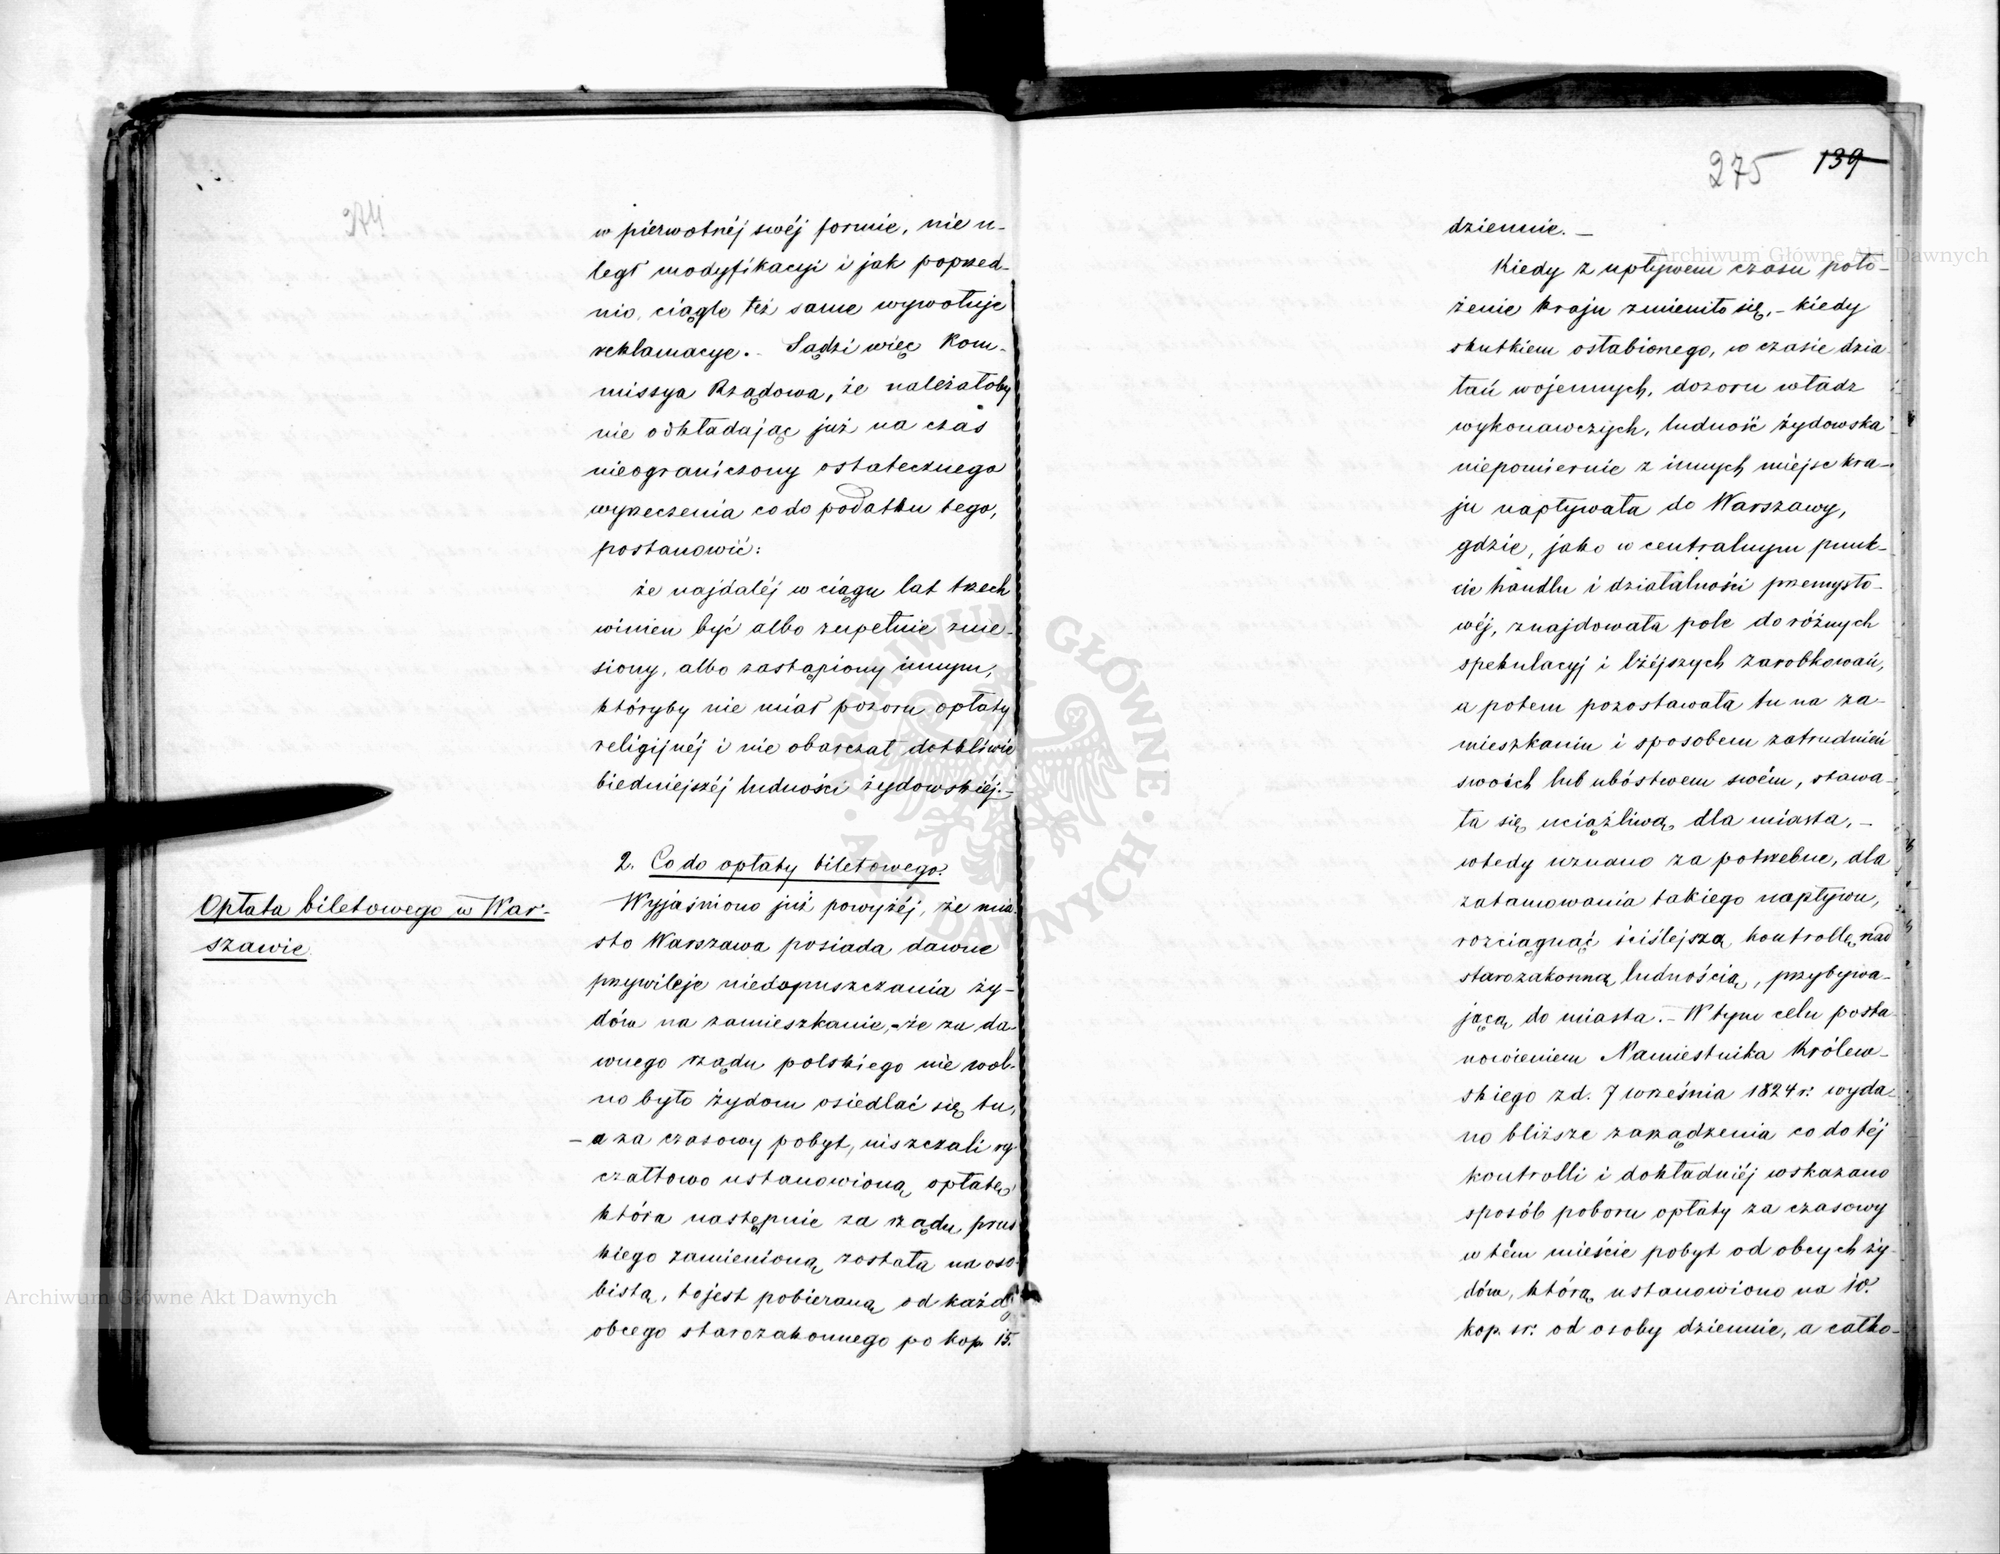 274
w pierwotnéj swéj formie, nie u-
legł modyfikacyi i jak poprzed-
nio, ciągle też same wywołuje
reklamacye. Sądzi więc Kom-
missya Rządowa, że należałoby
nie odkładając już na czas
nieograniczony ostatecznego
wyrzeczenia co do podatku tego,
postanowić:
że najdaléj w ciągu lat trzech
winien być albo zupełnie znie-
siony, albo zastąpiony innym,
któryby nie miał pozoru opłaty
religijnéj i nie obarczał dotkliwie
biedniejszéj ludności żydowskiéj.–
2. Co do opłaty biletowego.
Opłata biletowego w War-
szawie.
Wyjaśniono już powyżéj, że mia-
sto Warszawa posiada dawne
przywileje niedopuszczania ży-
dów na zamieszkanie, – że za da-
wnego rządu polskiego nie wol-
no było żydom osiedlać się tu,
– a za czasowy pobyt, uiszczali ry-
czałtowo ustanowioną opłatę,
która następnie za rządu prus
kiego zamienioną została na oso-
bistą, to jest pobieraną od każdego
obcego starozakonnego po kop. 15.
275 139
dziennie. –
Kiedy z upływem czasu poło-
żenie kraju zmieniło się, – kiedy
skutkiem osłabionego, w czasie dzia-
łań wojennych, dozoru władz
wykonawczych, ludność żydowska
niepomiernie z innych miejsc kra-
ju napływała do Warszawy,
gdzie, jako w centralnym punk-
cie handlu i działalności przemysło-
wéj, znajdowała pole do różnych
spekulacyj i lżéjszych zarobkowań,
a potem pozostawała tu na za-
mieszkaniu i sposobem zatrudnień
swoich lub ubóstwem swém, stawa-
ła się uciążliwą dla miasta, –
wtedy uznano za potrzebne, dla
zatamowania takiego napływu,
rozciągnąć ściślejszą kontrollę nad
starozakonną ludnością, przybywa-
jącą do miasta. – W tym celu posta-
nowieniem Namiestnika Królew-
skiego z d. 7 września 1824 r. wyda-
no bliższe zarządzenia co do téj
kontrolli i dokładniéj wskazano
sposób poboru opłaty za czasowy
w tém mieście pobyt od obcych ży-
dów, którą ustanowiono na 10.
kop. sr. od osoby dziennie, a całko-
Archiwum Główne Akt Dawnych
Archiwum Główne Akt Dawnych
ARCHIWUM GŁÓWNE AKT DAWNYCH